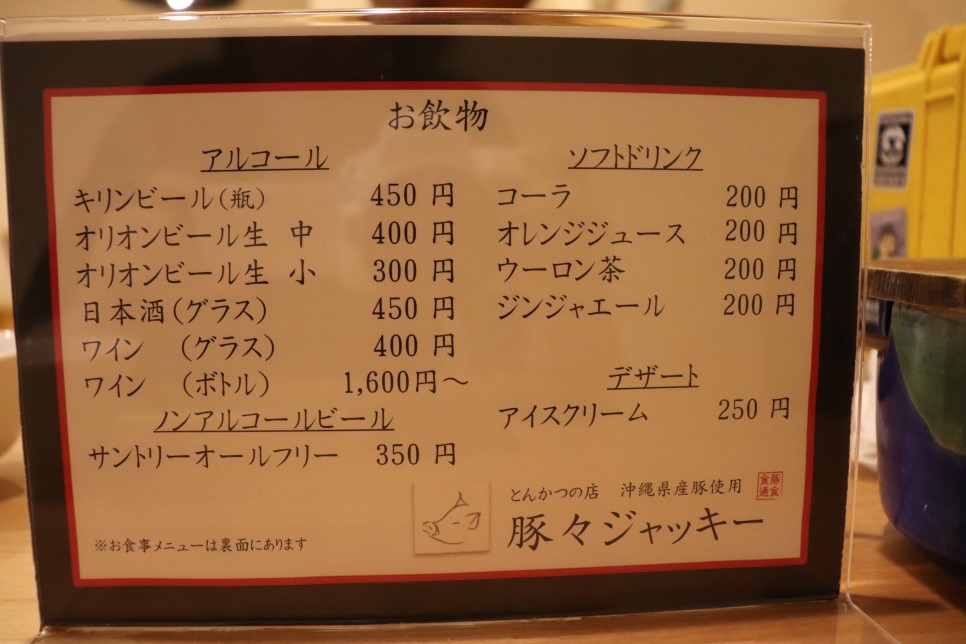 お飲物
アルコール
キリンビール(瓶) 450 円
オリオンビール生 中 400 円
オリオンビール生 小 300 円
日本酒(グラス) 450 円
ワイン (グラス) 400 円
ワイン (ボトル) 1,600円～
ノンアルコールビール
サントリーオールフリー 350 円
※お食事メニューは裏面にあります
ソフトドリンク
コーラ 200 円
オレンジジュース 200 円
ウーロン茶 200 円
ジンジャエール 200 円
デザート
アイスクリーム 250 円
とんかつの店 沖縄県産豚使用
豚々ジャッキー